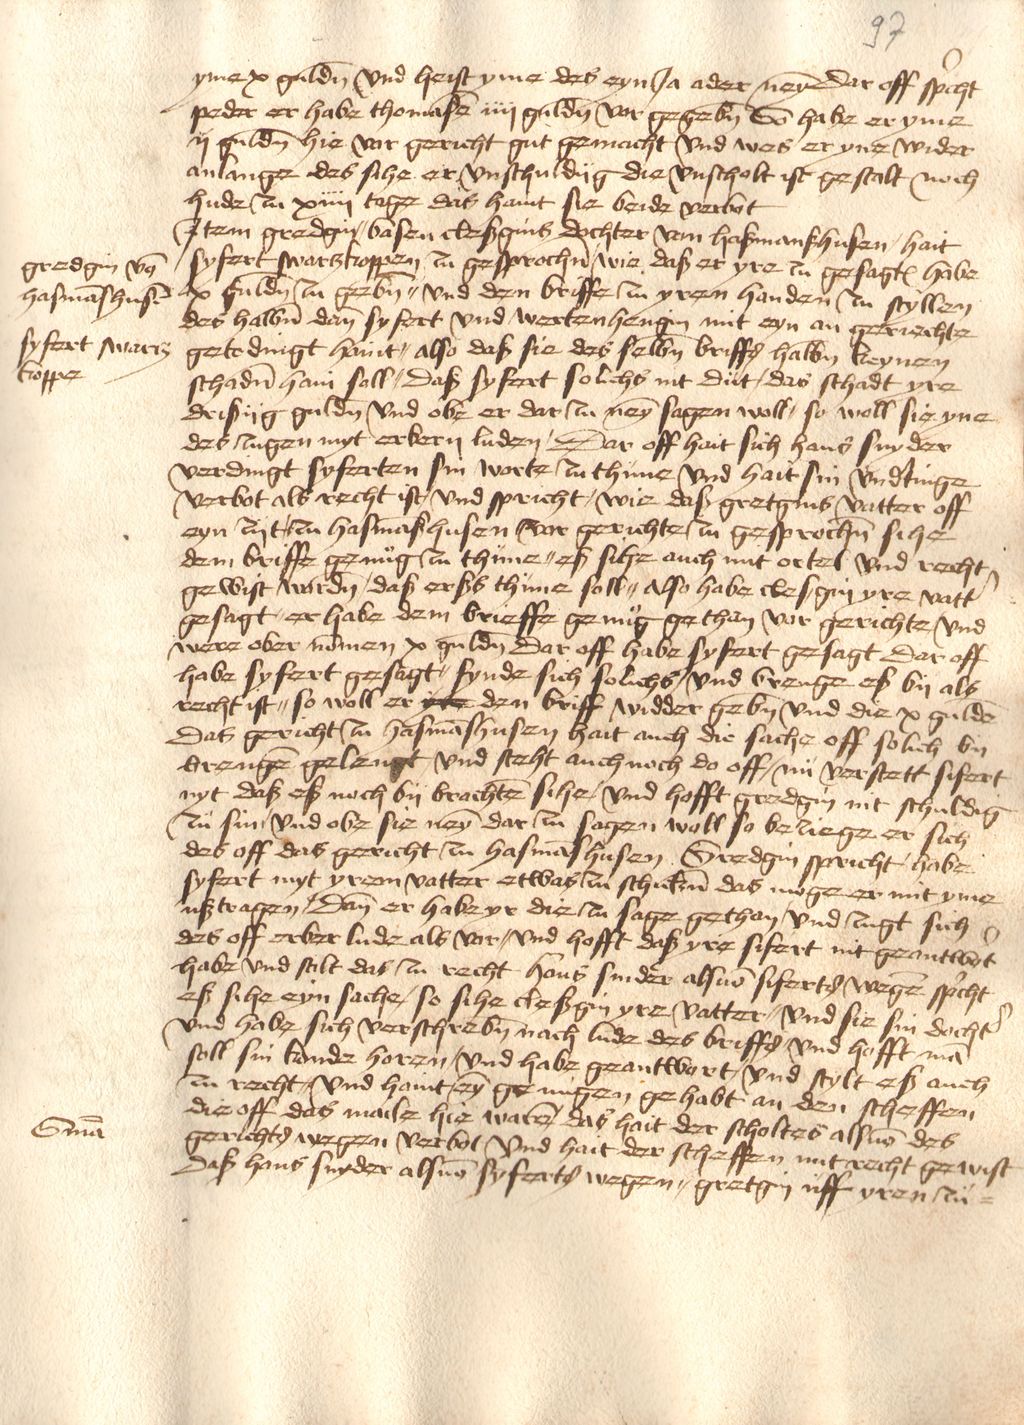 97
yme x guldn̄ Vnd heist yme des eyn Ja ader neyn̄ Dar off spͦcht
peder er habe thomasē iiij guldn̄ vor gegebn̄ So habe er yme
ij guldn̄ hie vor gericht gut gemacht Vnd wes er yne wider
anlange des sihe er vnschuldiig die vnscholt ist gestalt noch
hude zu xiiij tage das haint sie beide verbot
Item gredgin basen cleßgins dochter von haßmanßhusen hait
syfert swartzkoppen zu gesprochn̄ wie daß er yre zu gesagt habe
x guldn̄ zu gebn̄ vnd den briffe zu yren handen zu styllen
des halbn̄ dan̄ syfert vnd werkenhengin mit eyn an gerichte
getedingt haint also daß sie des selbn̄ briffs halbn̄ keynen
schadn̄ hain soll Daß syfert solichs nit dut das schadt yre
drißiig guldn̄ Vnd obe er dar zu neyn̄ sagen woll so woll sie yne
des zugen myt erbern luden Dar off hait sich hans snyder
verdingt syferten sin worte zu thune Vnd hait sin vnd dinge
verbot als recht ist vnd spricht wie daß gretgins vatter off
eyn zyt zu hasmāßhusen vor gerichte zu gesprochn̄ sihe
dem briffe genug zu thune eß sihe auch mit ortel vnd recht
gewist wordn̄ daß erßs thune soll Also habe cleßgin yre vatt̾
gesagt er habe dem brieffe genug gethan vor gerichte vnd
were ober nōmen x guldn̄ Dar off habe syfert gesagt Dar off
habe syfert gesagt fynde sich solichs vnd brenge eß bij als
recht ist so woll er den briff widder gebn̄ vnd die x guldē
Das gericht zu hasmāshusen hait auch die sache off solich bij
brengē gelengt vnd steht auch noch do off nu verstett sifert
nyt daß eß noch bij brachte sihe vnd hofft gredgin nit schuldig
zu sin vnd obe sie neyn̄ dar zu sagen woll so beziege er sich
des off das gericht zu hasmāshusen Gredgin spricht habe
syfert myt yrem vatter etwas zu schickn̄ das moge er mit yme
ußtragen Dan̄ er habe yr die zu sage gethan vnd zugt sich
des off erber lude als vor vnd hofft daß yre sifert nit geantwͦt
habe vnd stilt das zu recht Hans snider alsuō siferts wegē spͦcht
eß sihe eyn sache so sihe cleßgin yre vatter vnd sie sin docht̾
Vnd habe sich verschrebn̄ nach lude des briffs vnd hofft mā
soll sin kunde horen vnd habe geantwort vnd stylt eß auch
zu recht Vnd haint eyn̄ genugen gehabt an den scheffen
die off das maile hie ware das hait der scholtes alsuō des
gerichts wegen verbot Vnd hait der scheffen mit recht gewist
Daß hans snyder alsuō syferts wegen gretgin uff yren zu=
gredgin vō
hasmāshusē
syfert swartz
koppe
Smā